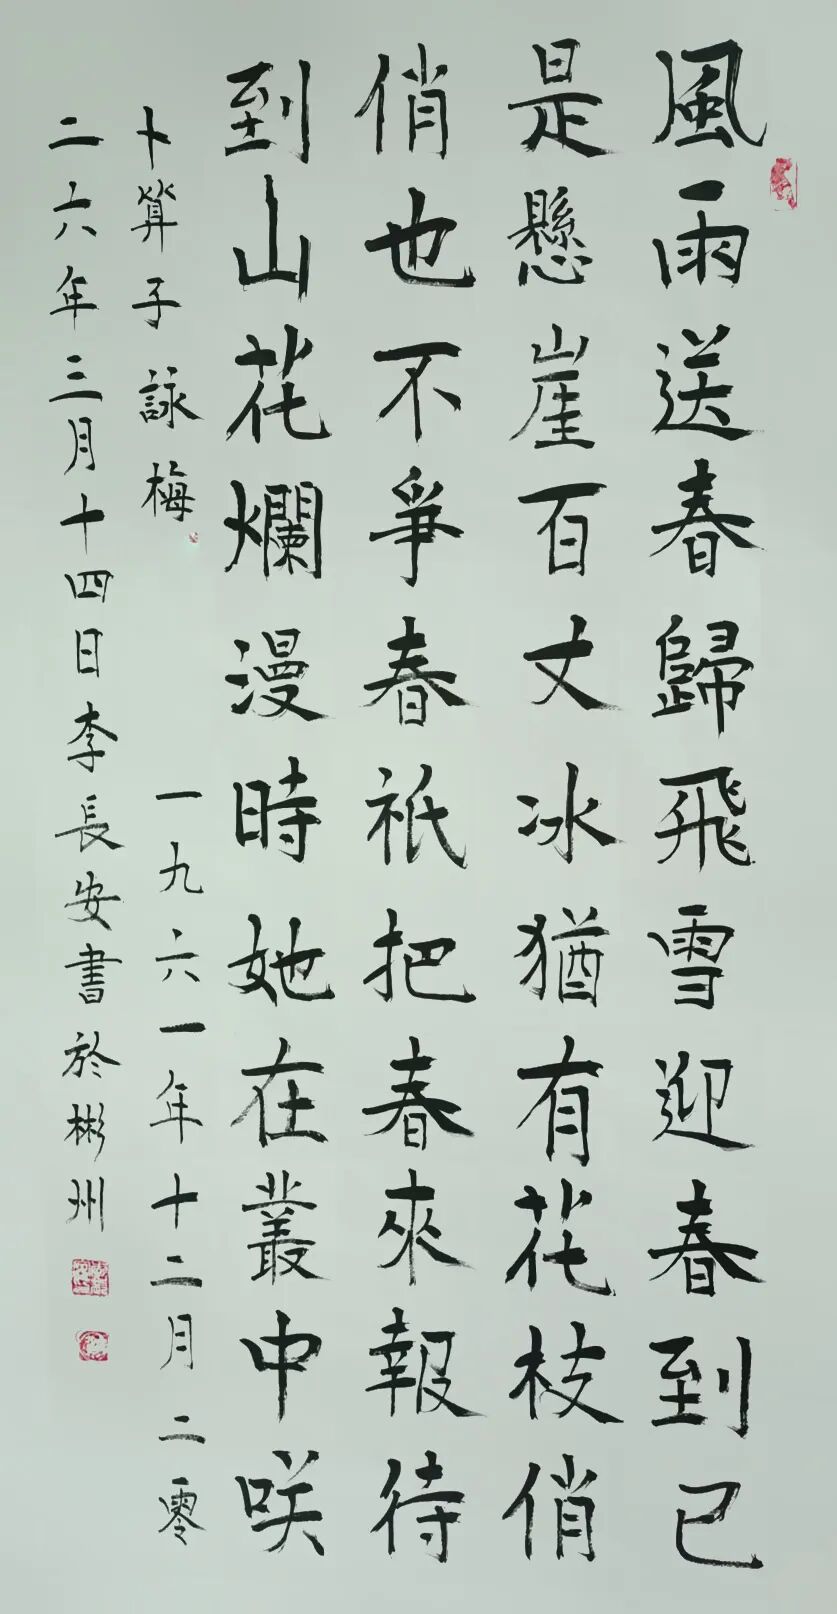 風雨送春歸飛雪迎春到已
是懸崖百丈冰猶有花枝俏
俏也不爭春祇把春來報待
到山花爛漫時她在叢中咲
卜算子詠梅 一九六一年十二月 二零
二六年三月十四日李長安書於彬州